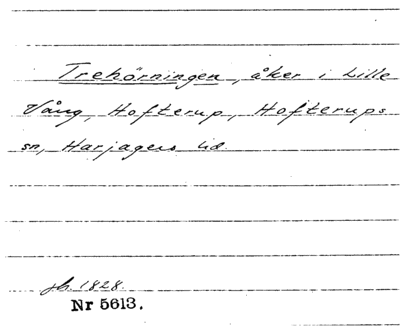 Trehörningen, åker i Lille
Vång, Hofterup, Hofterups
sn, Harjagers hd.
jb. 1828.
Nr 5613.